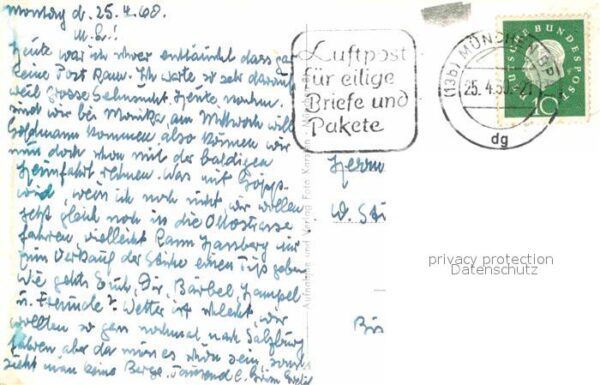 Montag d. 25.4.60.
M.L.!
Heute war ich schwer enttäuscht dass gar
keine Post kam. Ich warte so sehr darauf
weil grosse Sehnsucht. Heute
sind wir bei Monika, am Mittwoch will
Goldmann kommen also können wir
nun doch schon mit der baldigen
Heimfahrt rechnen. Was mit
wird, weiss ich noch nicht, wir wollen
jetzt gleich noch in die Ottostrasse
fahren, vielleicht kann uns
zum Verkauf der einen Tip geben
Wie gehts Euch, Dir, Bärbel, Hampel
u. Freunde? Wetter ist schlecht, wir
wollten so gern nochmal nach Salzburg
fahren, aber da muss es schön sein, sonst
sieht man keine Berge. Tausend
Luftpost
für eilige
Briefe und
Pakete
(13b) MÜNCHEN BP
25.4.60
dg
DEUTSCHE BUNDESPOST
10
Herrn
W. Stü
Bis
privacy protection
Datenschutz